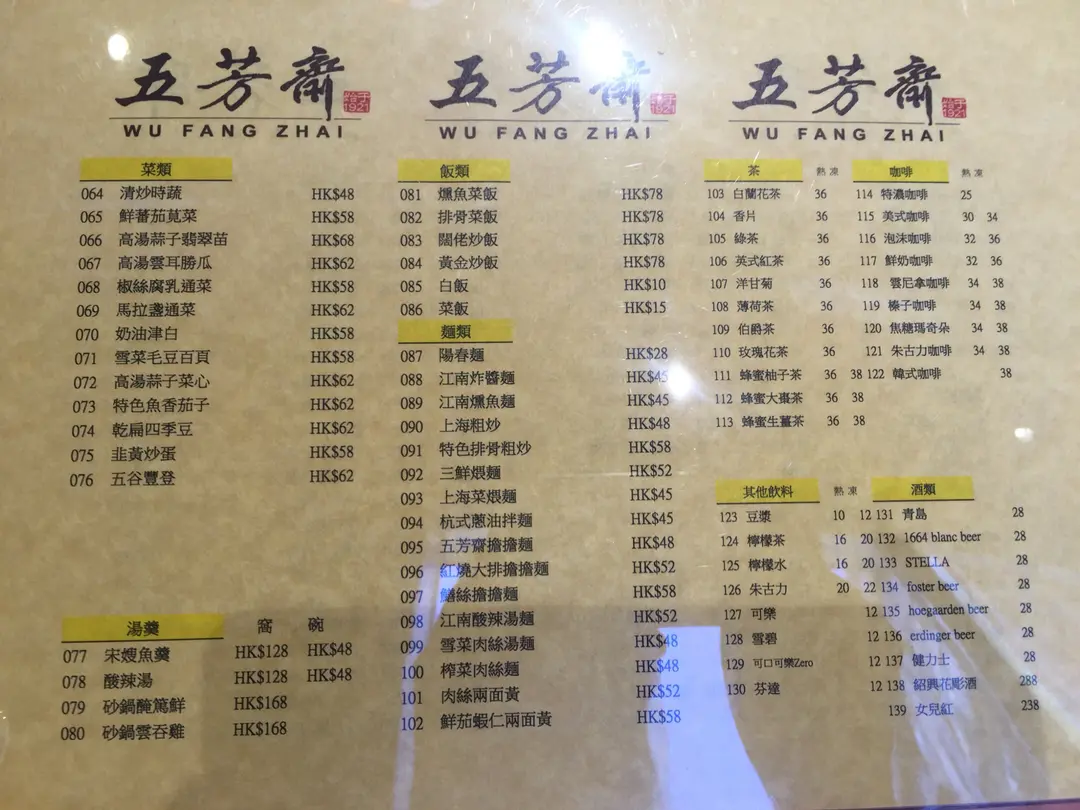 五芳齋
始于
1921
WU FANG ZHAI
菜類
064 清炒時蔬 HK$48
065 鮮蕃茄莧菜 HK$58
066 高湯蒜子翡翠苗 HK$68
067 高湯雲耳勝瓜 HK$62
068 椒絲腐乳通菜 HK$58
069 馬拉盞通菜 HK$62
070 奶油津白 HK$58
071 雪菜毛豆百頁 HK$58
072 高湯蒜子菜心 HK$62
073 特色魚香茄子 HK$62
074 乾扁四季豆 HK$62
075 韭黃炒蛋 HK$58
076 五谷豐登 HK$62
湯羹 窩 碗
077 宋嫂魚羹 HK$128 HK$48
078 酸辣湯 HK$128 HK$48
079 砂鍋醃篤鮮 HK$168
080 砂鍋雲吞雞 HK$168
五芳齋
始于
1921
WU FANG ZHAI
飯類
081 燻魚菜飯 HK$78
082 排骨菜飯 HK$78
083 闊佬炒飯 HK$78
084 黃金炒飯 HK$78
085 白飯 HK$10
086 菜飯 HK$15
麵類
087 陽春麵 HK$28
088 江南炸醬麵 HK$45
089 江南燻魚麵 HK$45
090 上海粗炒 HK$48
091 特色排骨粗炒 HK$58
092 三鮮煨麵 HK$52
093 上海菜煨麵 HK$45
094 杭式蔥油拌麵 HK$45
095 五芳齋擔擔麵 HK$48
096 紅燒大排擔擔麵 HK$52
097 鱔絲擔擔麵 HK$58
098 江南酸辣湯麵 HK$52
099 雪菜肉絲湯麵 HK$48
100 榨菜肉絲麵 HK$48
101 肉絲兩面黃 HK$52
102 鮮茄蝦仁兩面黃 HK$58
五芳齋
始于
1921
WU FANG ZHAI
茶 熱 凍
103 白蘭花茶 36
104 香片 36
105 綠茶 36
106 英式紅茶 36
107 洋甘菊 36
108 薄荷茶 36
109 伯爵茶 36
110 玫瑰花茶 36
111 蜂蜜柚子茶 36 38
112 蜂蜜大棗茶 36 38
113 蜂蜜生薑茶 36 38
咖啡 熱 凍
114 特濃咖啡 25
115 美式咖啡 30 34
116 泡沫咖啡 32 36
117 鮮奶咖啡 32 36
118 雲尼拿咖啡 34 38
119 榛子咖啡 34 38
120 焦糖瑪奇朵 34 38
121 朱古力咖啡 34 38
122 韓式咖啡 38
其他飲料 熱 凍
123 豆漿 10 12
124 檸檬茶 16 20
125 檸檬水 16 20
126 朱古力 20 22
127 可樂 12
128 雪碧 12
129 可口可樂Zero 12
130 芬達 12
酒類
131 青島 28
132 1664 blanc beer 28
133 STELLA 28
134 foster beer 28
135 hoegaarden beer 28
136 erdinger beer 28
137 健力士 28
138 紹興花彫酒 288
139 女兒紅 238